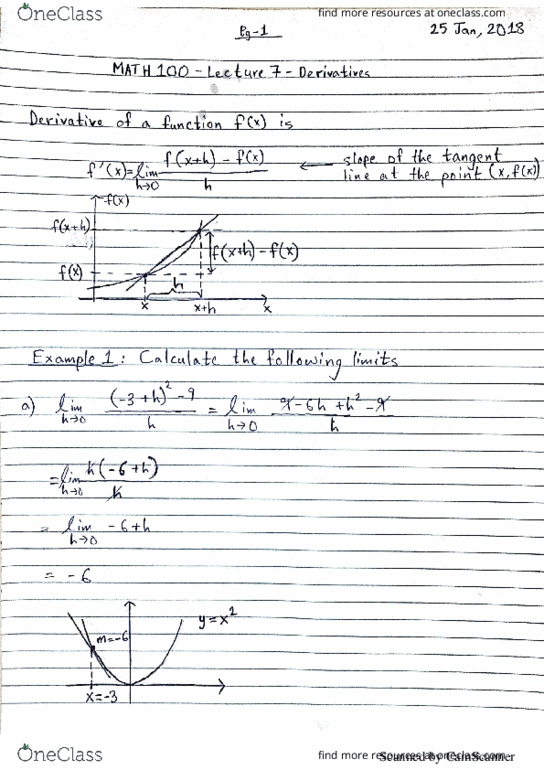 OneClass
find more resources at oneclass.com
Pg-1
25 Jan, 2018
MATH 100 - Lecture 7 - Derivatives
Derivative of a function f(x) is
f'(x) = lim h→0 (f(x+h) - f(x)) / h ← slope of the tangent
line at the point (x, f(x))
f(x)
f(x+h)
f(x+h) - f(x)
f(x)
h
x x+h x
Example 1: Calculate the following limits
a) lim h→0 ((-3+h)² - 9) / h = lim h→0 (9 - 6h + h² - 9) / h
= lim h→0 h(-6+h) / h
= lim h→0 -6+h
= -6
y = x²
m=-6
x=-3
OneClass
find more resources at oneclass.com
Scanned by CamScanner